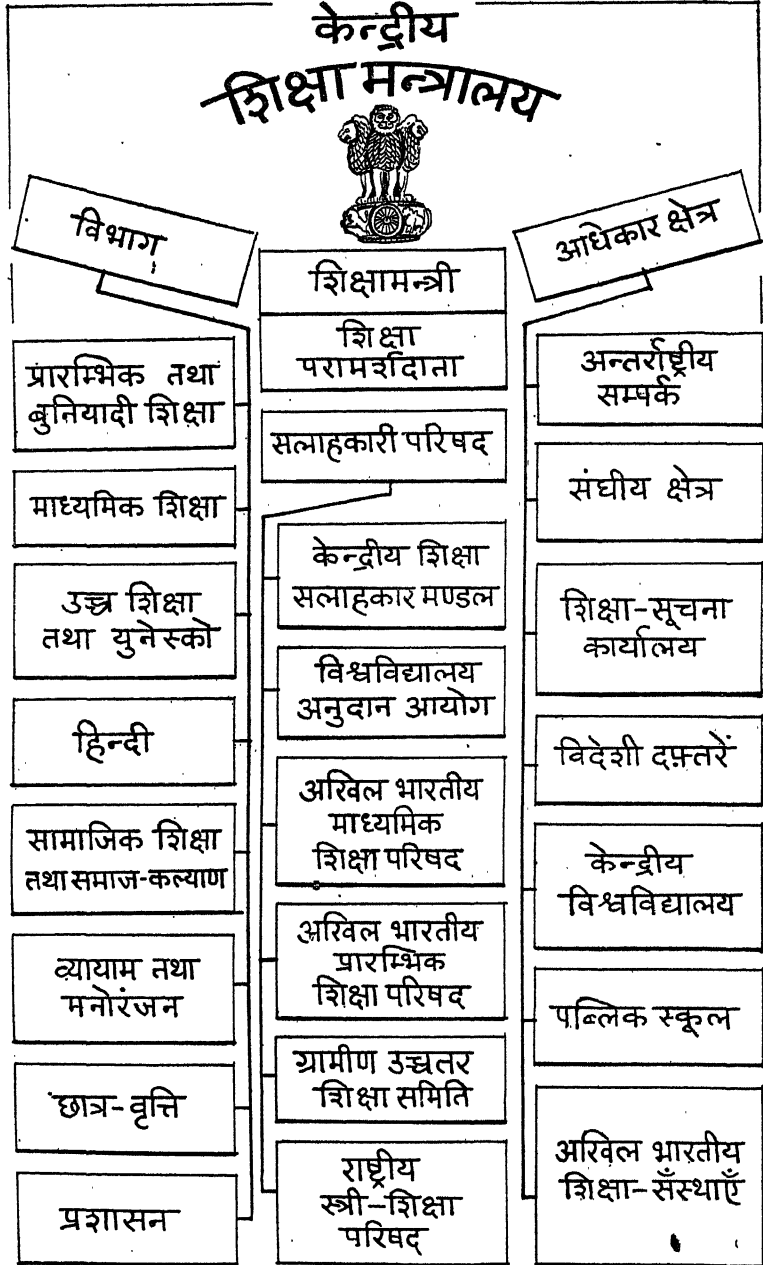 केन्द्रीय
शिक्षा मन्त्रालय
विभाग
प्रारम्भिक तथा
बुनियादी शिक्षा
माध्यमिक शिक्षा
उच्च शिक्षा
तथा युनेस्को
हिन्दी
सामाजिक शिक्षा
तथा समाज-कल्याण
व्यायाम तथा
मनोरंजन
छात्र-वृत्ति
प्रशासन
शिक्षामन्त्री
शिक्षा
परामर्शदाता
सलाहकारी परिषद
केन्द्रीय शिक्षा
सलाहकार मण्डल
विश्वविद्यालय
अनुदान आयोग
अखिल भारतीय
माध्यमिक
शिक्षा परिषद
अखिल भारतीय
प्रारम्भिक
शिक्षा परिषद
ग्रामीण उच्चतर
शिक्षा समिति
राष्ट्रीय
स्त्री-शिक्षा
परिषद्
अधिकार क्षेत्र
अन्तर्राष्ट्रीय
सम्पर्क
संघीय क्षेत्र
शिक्षा-सूचना
कार्यालय
विदेशी दफ़्तरें
केन्द्रीय
विश्वविद्यालय
पब्लिक स्कूल
अखिल भारतीय
शिक्षा-सँस्थाएँ